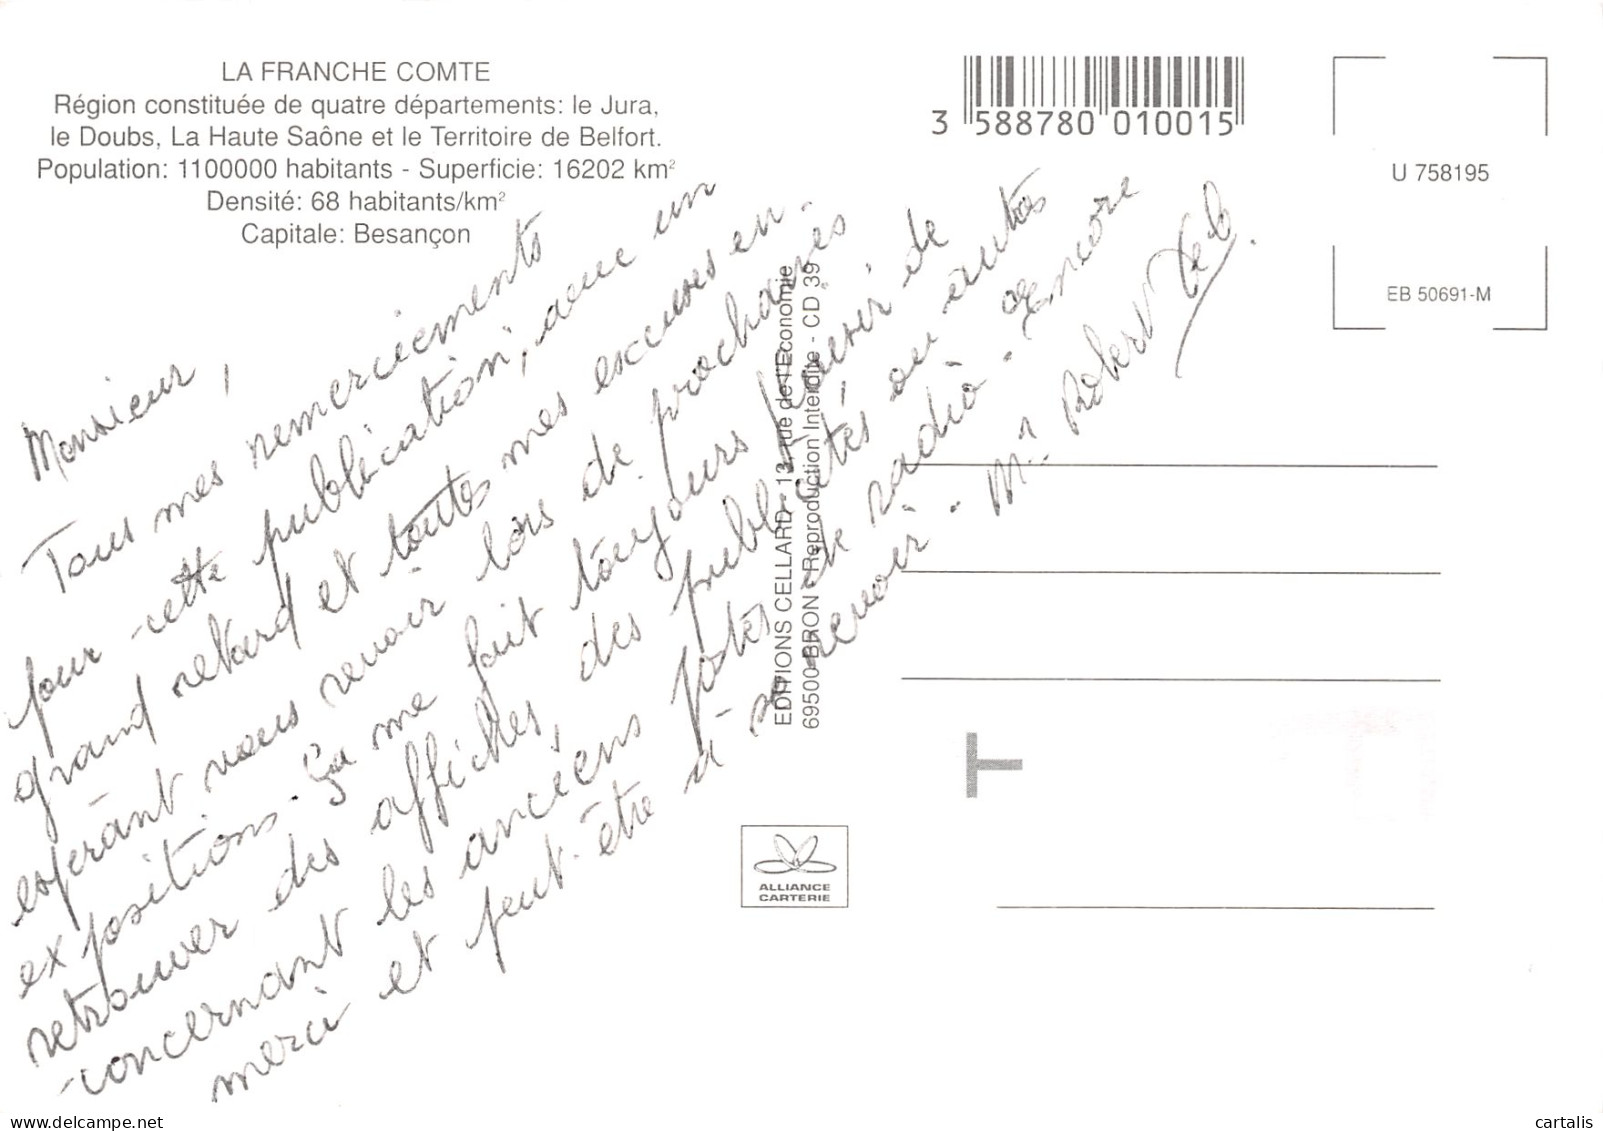 LA FRANCHE COMTE
Région constituée de quatre départements: le Jura,
le Doubs, La Haute Saône et le Territoire de Belfort.
Population: 1100000 habitants - Superficie: 16202 km²
Densité: 68 habitants/km²
Capitale: Besançon
3 588780 010015
U 758195
EB 50691-M
Monsieur,
Tous mes remerciements
pour cette publication, avec un
grand retard et toutes mes excuses en
espérant vous revoir lors de prochaines
expositions. Ça me fait toujours plaisir de
retrouver des affiches, des publicités ou autres
concernant les anciens postes de radio. Encore
merci et peut-être à se revoir. Mr Robert
EDITIONS CELLARD - 13, rue de l'Economie
69500 BRON - Reproduction Interdite - CD 39
ALLIANCE
CARTERIE
delcampe.net
cartalis